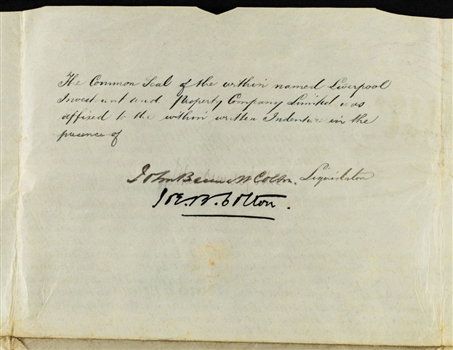 The Common Seal of the within named Liverpool
Invest ent and Property Company Limited was
affixed to the within written Indenture in the
presence of
John Bennett Colton. Liquidator
Colton.